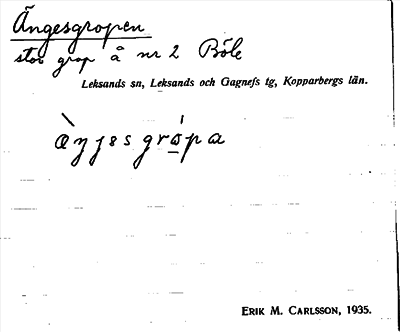 Ängesgropen
stor grop å nr 2 Böle
Leksands sn, Leksands och Gagnefs tg, Kopparbergs län.
æ̀ŋjesgró̱pa
ERIK M. CARLSSON, 1935.